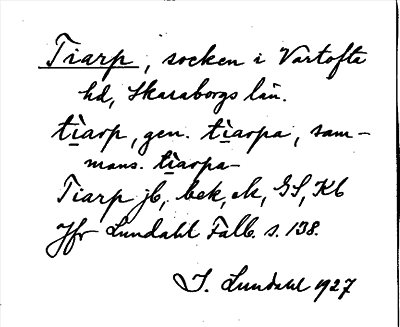 Tiarp, socken i Vartofta
hd, Skaraborgs län.
tìarp, gen. tìarpa, sam-
mans. tìarpa-
Tiarp jb, bek, ek, GS, Kb
Jfr Lundahl Falb. s. 138.
I. Lundahl 1927